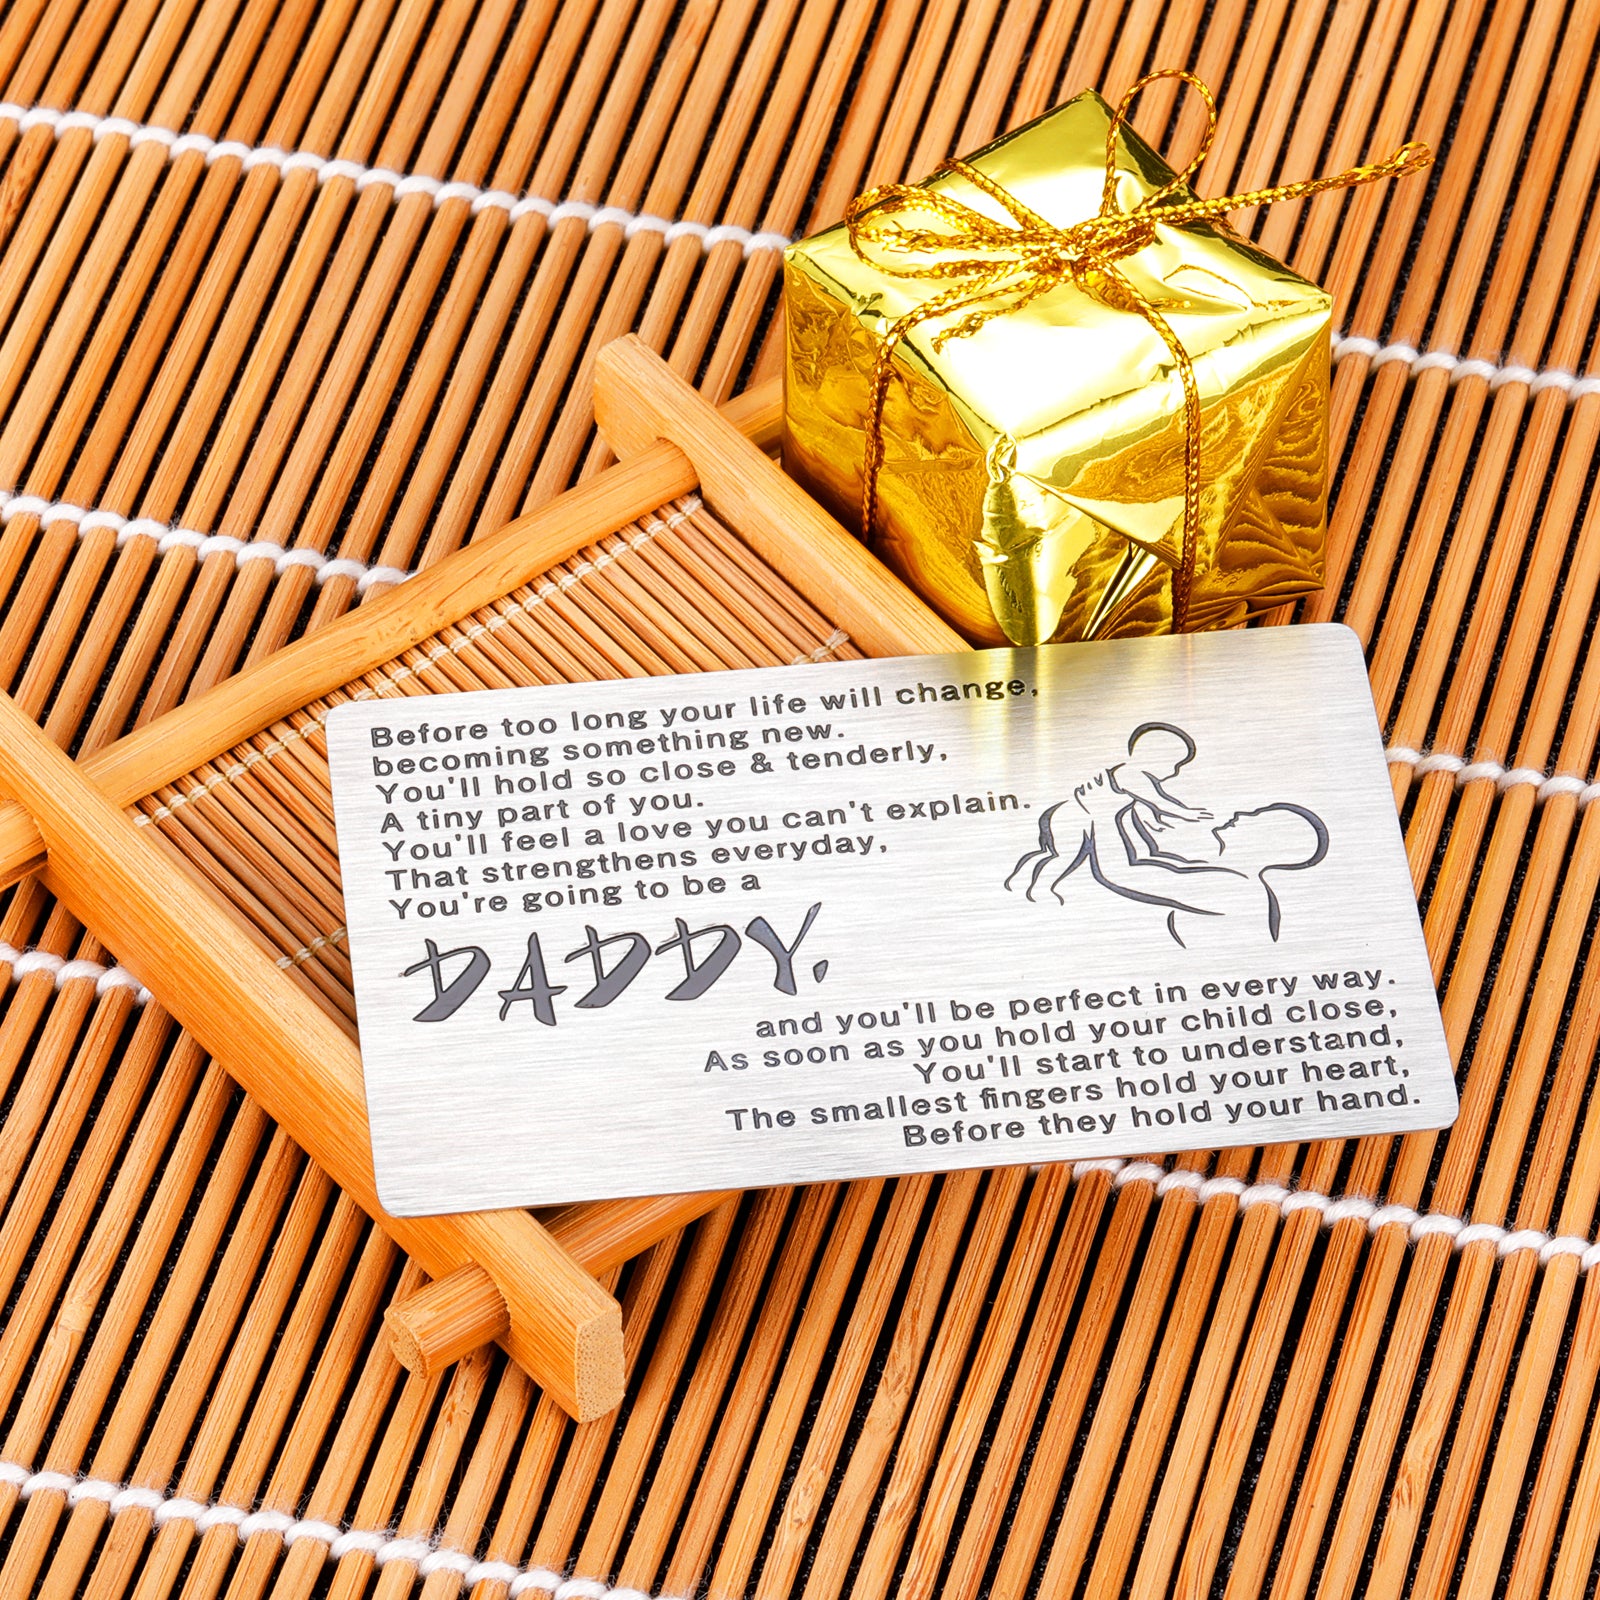 Before too long your life will change,
becoming something new.
You'll hold so close & tenderly,
A tiny part of you.
You'll feel a love you can't explain.
That strengthens everyday,
You're going to be a
DADDY,
and you'll be perfect in every way.
As soon as you hold your child close,
You'll start to understand,
The smallest fingers hold your heart,
Before they hold your hand.